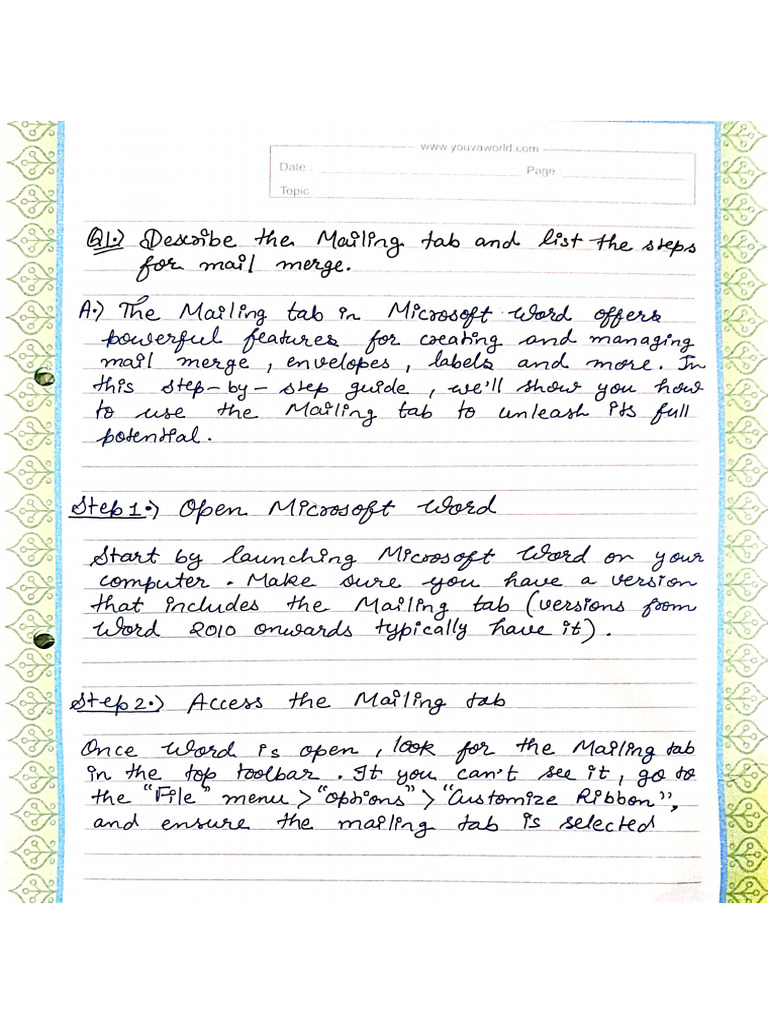 www.youvaworld.com
Date : Page :
Topic :
Q1.) Describe the Mailing tab and list the steps
for mail merge.
A.) The Mailing tab in Microsoft Word offers
powerful features for creating and managing
mail merge, envelopes, labels and more. In
this step-by-step guide, we'll show you how
to use the Mailing tab to unleash its full
potential.
Step 1.) Open Microsoft Word
Start by launching Microsoft Word on your
computer. Make sure you have a version
that includes the Mailing tab (versions from
Word 2010 onwards typically have it).
Step 2.) Access the Mailing tab
Once Word is open, look for the Mailing tab
in the top toolbar. It you can't see it, go to
the "File" menu > "options" > "Customize Ribbon",
and ensure the mailing tab is selected